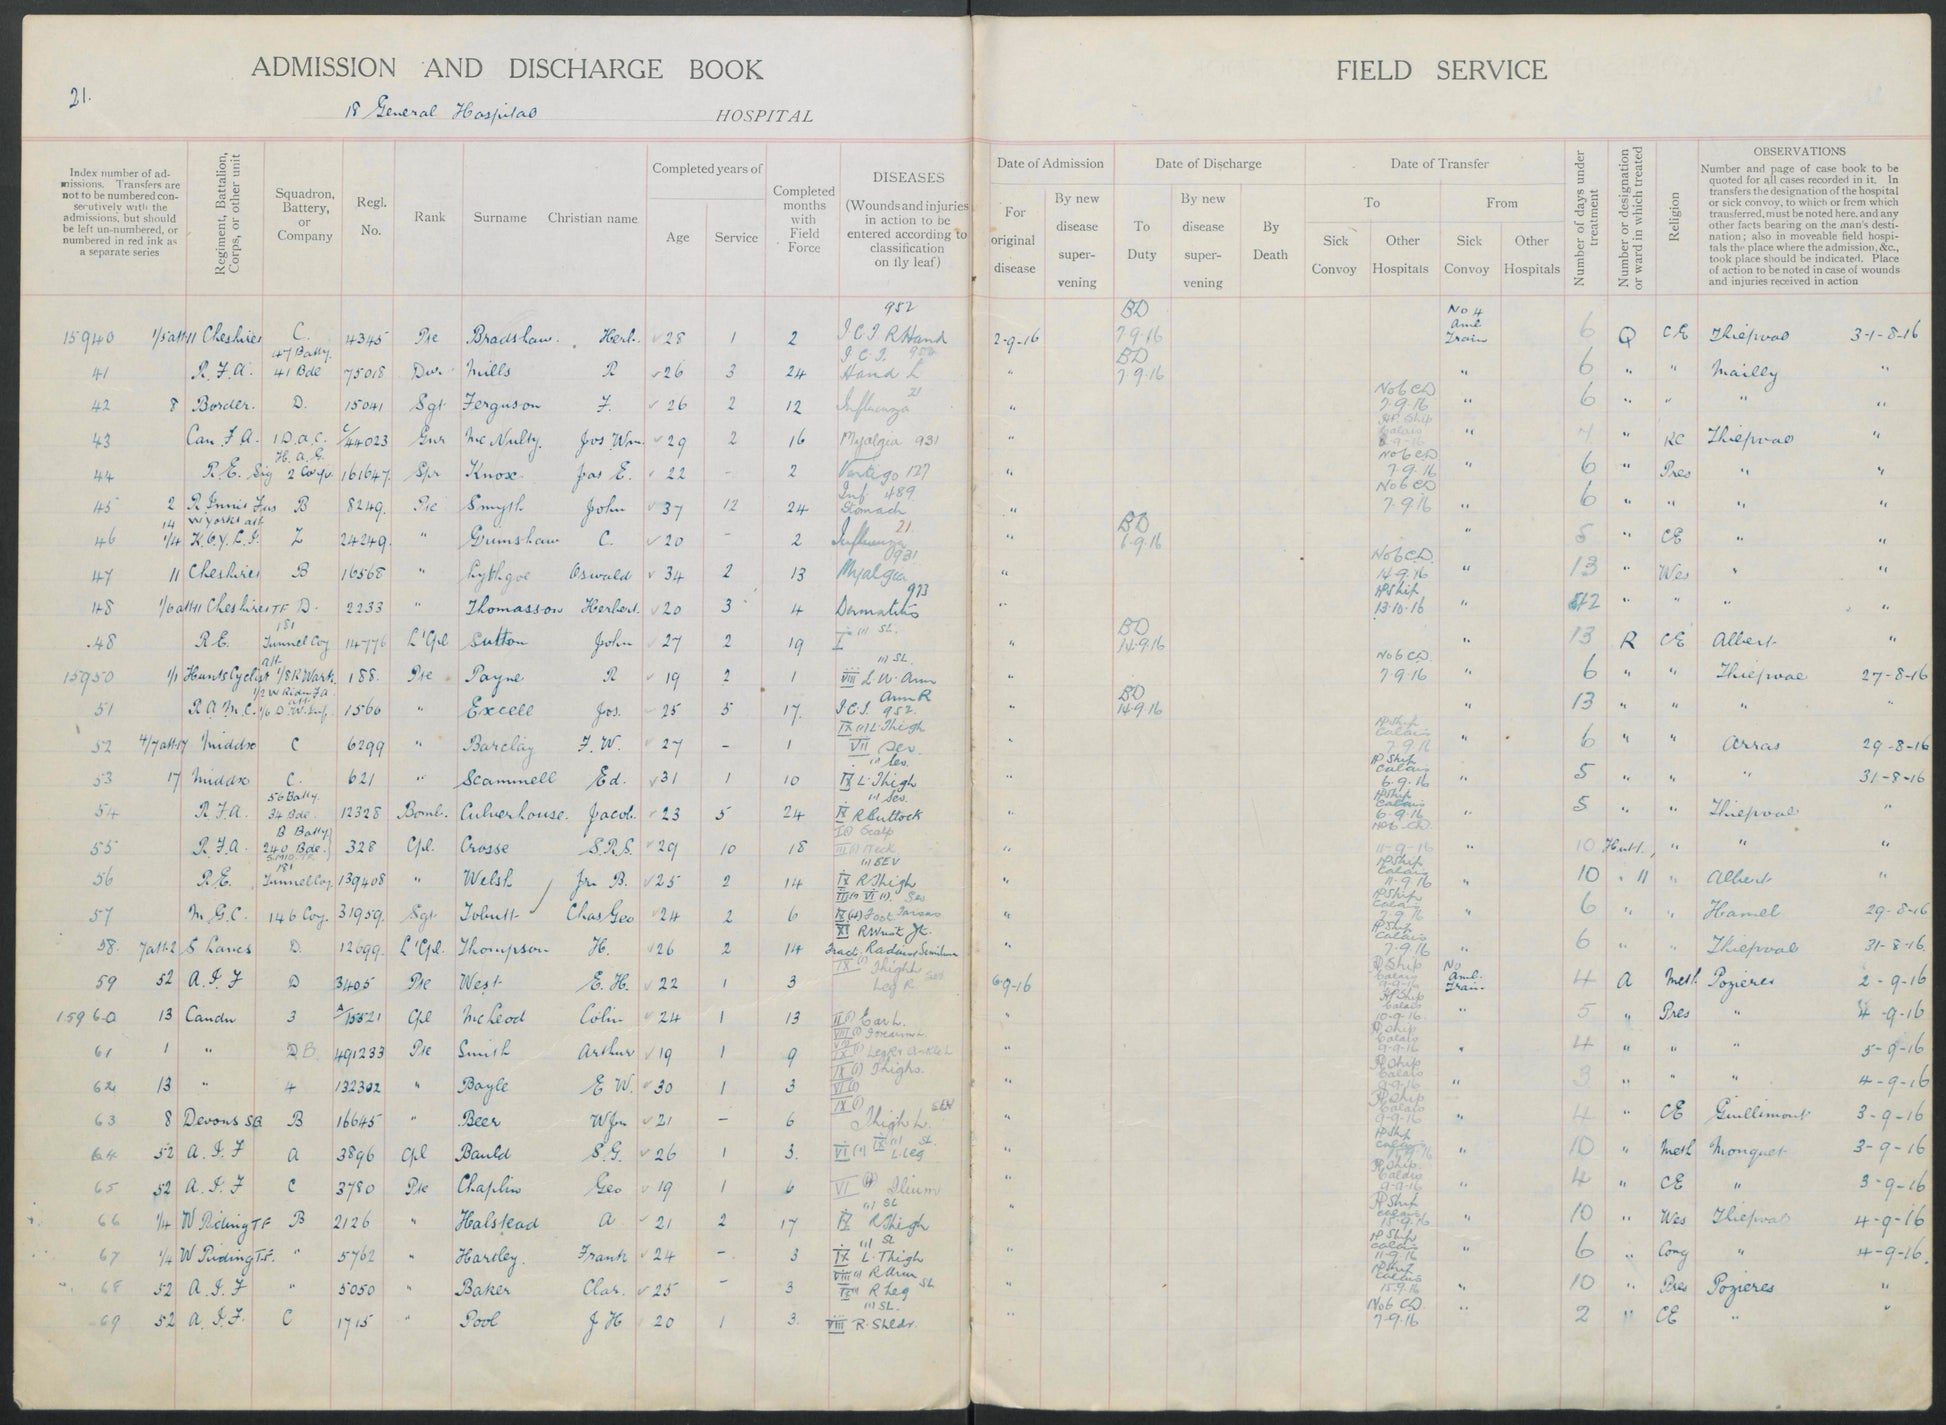 21.
ADMISSION AND DISCHARGE BOOK
18 General Hospital HOSPITAL
FIELD SERVICE
Index number of admissions. Transfers are not to be numbered consecutively with the admissions, but should be left un-numbered, or numbered in red ink as a separate series
Regiment, Battalion, Corps, or other unit
Squadron, Battery, or Company
Regl. No.
Rank
Surname Christian name
Completed years of
Age Service
Completed months with Field Force
DISEASES
(Wounds and injuries in action to be entered according to classification on fly leaf)
Date of Admission
For original disease
By new disease supervening
Date of Discharge
To Duty
By new disease supervening
By Death
Date of Transfer
To From
Sick Convoy Other Hospitals Sick Convoy Other Hospitals
Number of days under treatment
Number or designation or ward in which treated
Religion
OBSERVATIONS
Number and page of case book to be quoted for all cases recorded in it. In transfers the designation of the hospital or sick convoy, to which or from which transferred, must be noted here, and any other facts bearing on the man's destination; also in moveable field hospitals the place where the admission, &c., took place should be indicated. Place of action to be noted in case of wounds and injuries received in action
15940 1/5 att 11 Cheshires C. 4345 Pte Bradshaw. Herb. 28 1 2 I.C.T. R Hand 952 2-9-16 BD 7-9-16 No 4 Amb. Train 6 Q CE Thiepval 31-8-16
41 R.F.A. 47 Batty. 41 Bde 75018 Dvr Mills R 26 3 24 I.C.T. 952 Hand L " BD 7.9.16 " 6 " " Mailly "
42 8 Border. D. 15041 Sgt Ferguson F. 26 2 12 Influenza 21 " No 6 CD 7.9.16 " 6 " " " "
43 Can. F.A. 1 D.A.C. 44023 Gnr McNulty. Jos Wm. 29 2 16 Myalgia 931 " HP. Ship Calais " 7 " RC Thiepval "
44 R.E. Sig H.A.G. 2 Coy. 161647 Spr Knox Jas E. 22 - 2 Vertigo 127 " No 6 CD 7.9.16 " 6 " Pres " "
45 2 R Innis Fus B 8249. Pte Smyth John 37 12 24 Inf 489 Stomach " No 6 CD 7.9.16 " 6 " " " "
46 14 W Yorks att 1/4 K.O.Y.L.I. Z 24249. " Grimshaw C. 20 - 2 Influenza 21 " BD 6.9.16 " 5 " CE " "
47 11 Cheshires B 16568 " Lythgoe Oswald 34 2 13 Myalgia 931 " No 6 C.D. 14.9.16 " 13 " Wes " "
48 1/6 att 11 Cheshires TF D. 2233 " Thomasson Herbert. 20 3 4 Dermatitis 973 HP Ship 13.10.16 " 42 " " " "
48 R.E. 181 Tunnel Coy 14776 L'Cpl Sutton John 27 2 19 I SL. " BD 14.9.16 " 13 R CE Albert "
15950 1/1 Hunts Cyclist att 1/8 R Wark. 188. Pte Payne R 19 2 1 VIII SL L.W. Arm " No 6 CD 7.9.16 " 6 " " Thiepval 27-8-16
51 R.A.M.C. 1/2 W Riding F.A. 1560 " Excell Jos. 25 5 17. I.C.T. 952. Arm R " BD 14.9.16 13 " " " "
52 4/7 att 17 Middx C 6299 " Barclay F.W. 27 - 1 IX L. Thigh VII Sev. " HP Ship Calais 7.9.16 " 6 " " Arras 29-8-16
53 17 Middx C. 621 " Scammell Ed. 31 1 10 IX L. Thigh Sev. " HP Ship Calais 6.9.16 " 5 " " " 31-8-16
54 R.F.A. 56 Batty. 34 Bde. 12328 Bomb. Culverhouse. Jacob. 23 5 24 IX R Buttock Sev. " HP Ship Calais 6.9.16 " 5 " " Thiepval "
55 R.F.A. B Batty. 240 Bde. 328 Cpl. Crosse S.R.S. 29 10 18 Scalp Neck " No 6 CD 11-9-16 " 10 Hutt " " "
56 R.E. 181 Tunnel Coy. 139408 " Welsh Jn. B. 25 2 14 IX R Thigh SEV HP Ship Calais 11.9.16 " 10 " 11 " Albert "
57 M.G.C. 146 Coy. 31959. Sgt Tobutt Chas Geo 24 2 6 IX Foot Tarsus Sev " HP Ship Calais 7.9.16 " 6 " " Hamel 29-8-16
58. 7 att 2 S Lancs D. 12699. L'Cpl. Thompson H. 26 2 14 XI R Wrist Jt. Fract. Radius & Semilunar " HP Ship Calais 7.9.16 " 6 " " Thiepval 31-8-16
59 52 A.I.F D 3405 Pte West E.H. 22 1 3 IX Thigh Leg R 6-9-16 HP Ship Calais 9-9-16 No Amb. Train 4 A Meth Pozieres 2-9-16
15960 13 Candn 3 A/15521 Cpl McLeod Colin 24 1 13 II Ear L. VIII Forearm L. " HP Ship Calais 10.9.16 " 5 " Pres " 4-9-16
61 1 " D B. 491233 Pte Smith Arthur 19 1 9 IX Leg " HP Ship Calais 9-9-16 " 4 " " " 5-9-16
62 13 " 4 132302 " Bayle E W. 30 1 3 IX Thighs. VI " HP Ship Calais 9-9-16 " 3 " " " 4-9-16
63 8 Devons SB B 16645 " Beer Wm 21 - 6 IX Thigh L. SEV " HP Ship Calais 9-9-16 " 4 " CE Guillimont 3-9-16
64 52 A.I.F A 3896 Cpl Bauld S.G. 26 1 3. VI IX L. Leg SL " HP Ship Calais 15.9.16 " 10 " Meth Monquet 3-9-16
65 52 A.I.F C 3780 Pte Chaplin Geo 19 1 6 VI Ilium " HP Ship. Calais 9-9-16 " 4 " CE " 3-9-16
66 1/4 W Riding T.F B 2126 " Halstead A 21 2 17 IX R Thigh SL " HP Ship Calais 15-9-16 " 10 " Wes Thiepval 4-9-16
67 1/4 W Riding T.F. " 5762 " Hartley. Frank 24 - 3 IX L. Thigh SL " HP Ship Calais 11-9.16 " 6 " Cong " 4-9-16.
68 52 A.I.F " 5050 " Baker Clar. 25 - 3 VIII R Arm IX R Leg SL " HP Ship Calais 15.9.16 " 10 " Pres Pozieres "
69 52 A.I.F. C 1715 " Pool J H 20 1 3. VIII R. Shldr. SL. " No 6 CD. 7-9-16 " 2 " CE " "